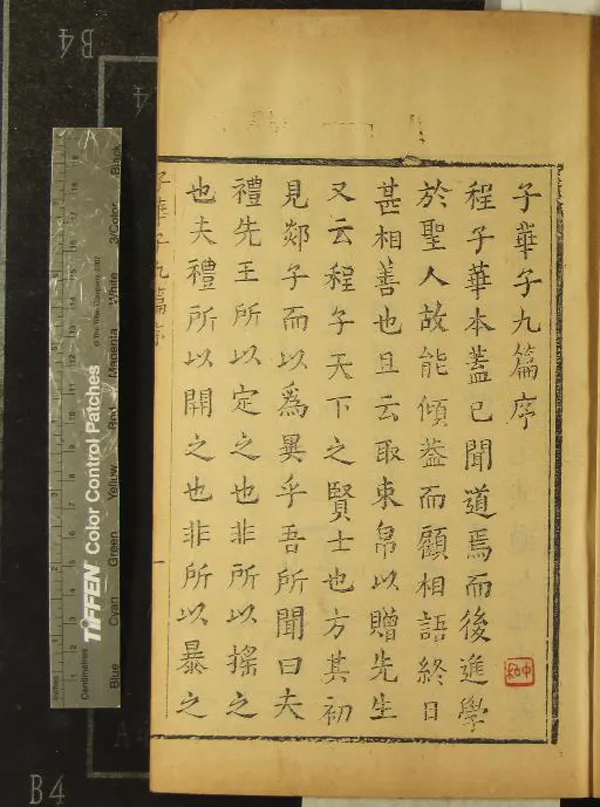 子華子九篇序
程子華本蓋已聞道焉而後進學
於聖人故能傾葢而顧相語終日
甚相善也且云取束帛以贈先生
又云程子天下之賢士也方其初
見郯子而以爲異乎吾所聞曰夫
禮先王所以定之也非所以搖之
也夫禮所以開之也非所以暴之
子華子九篇序
一
B4
B4
TIFFEN Color Control Patches
© The Tiffen Company, 2007
Inches
Centimetres
Blue
Cyan
Green
Yellow
Red
Magenta
White
3/Color
Black